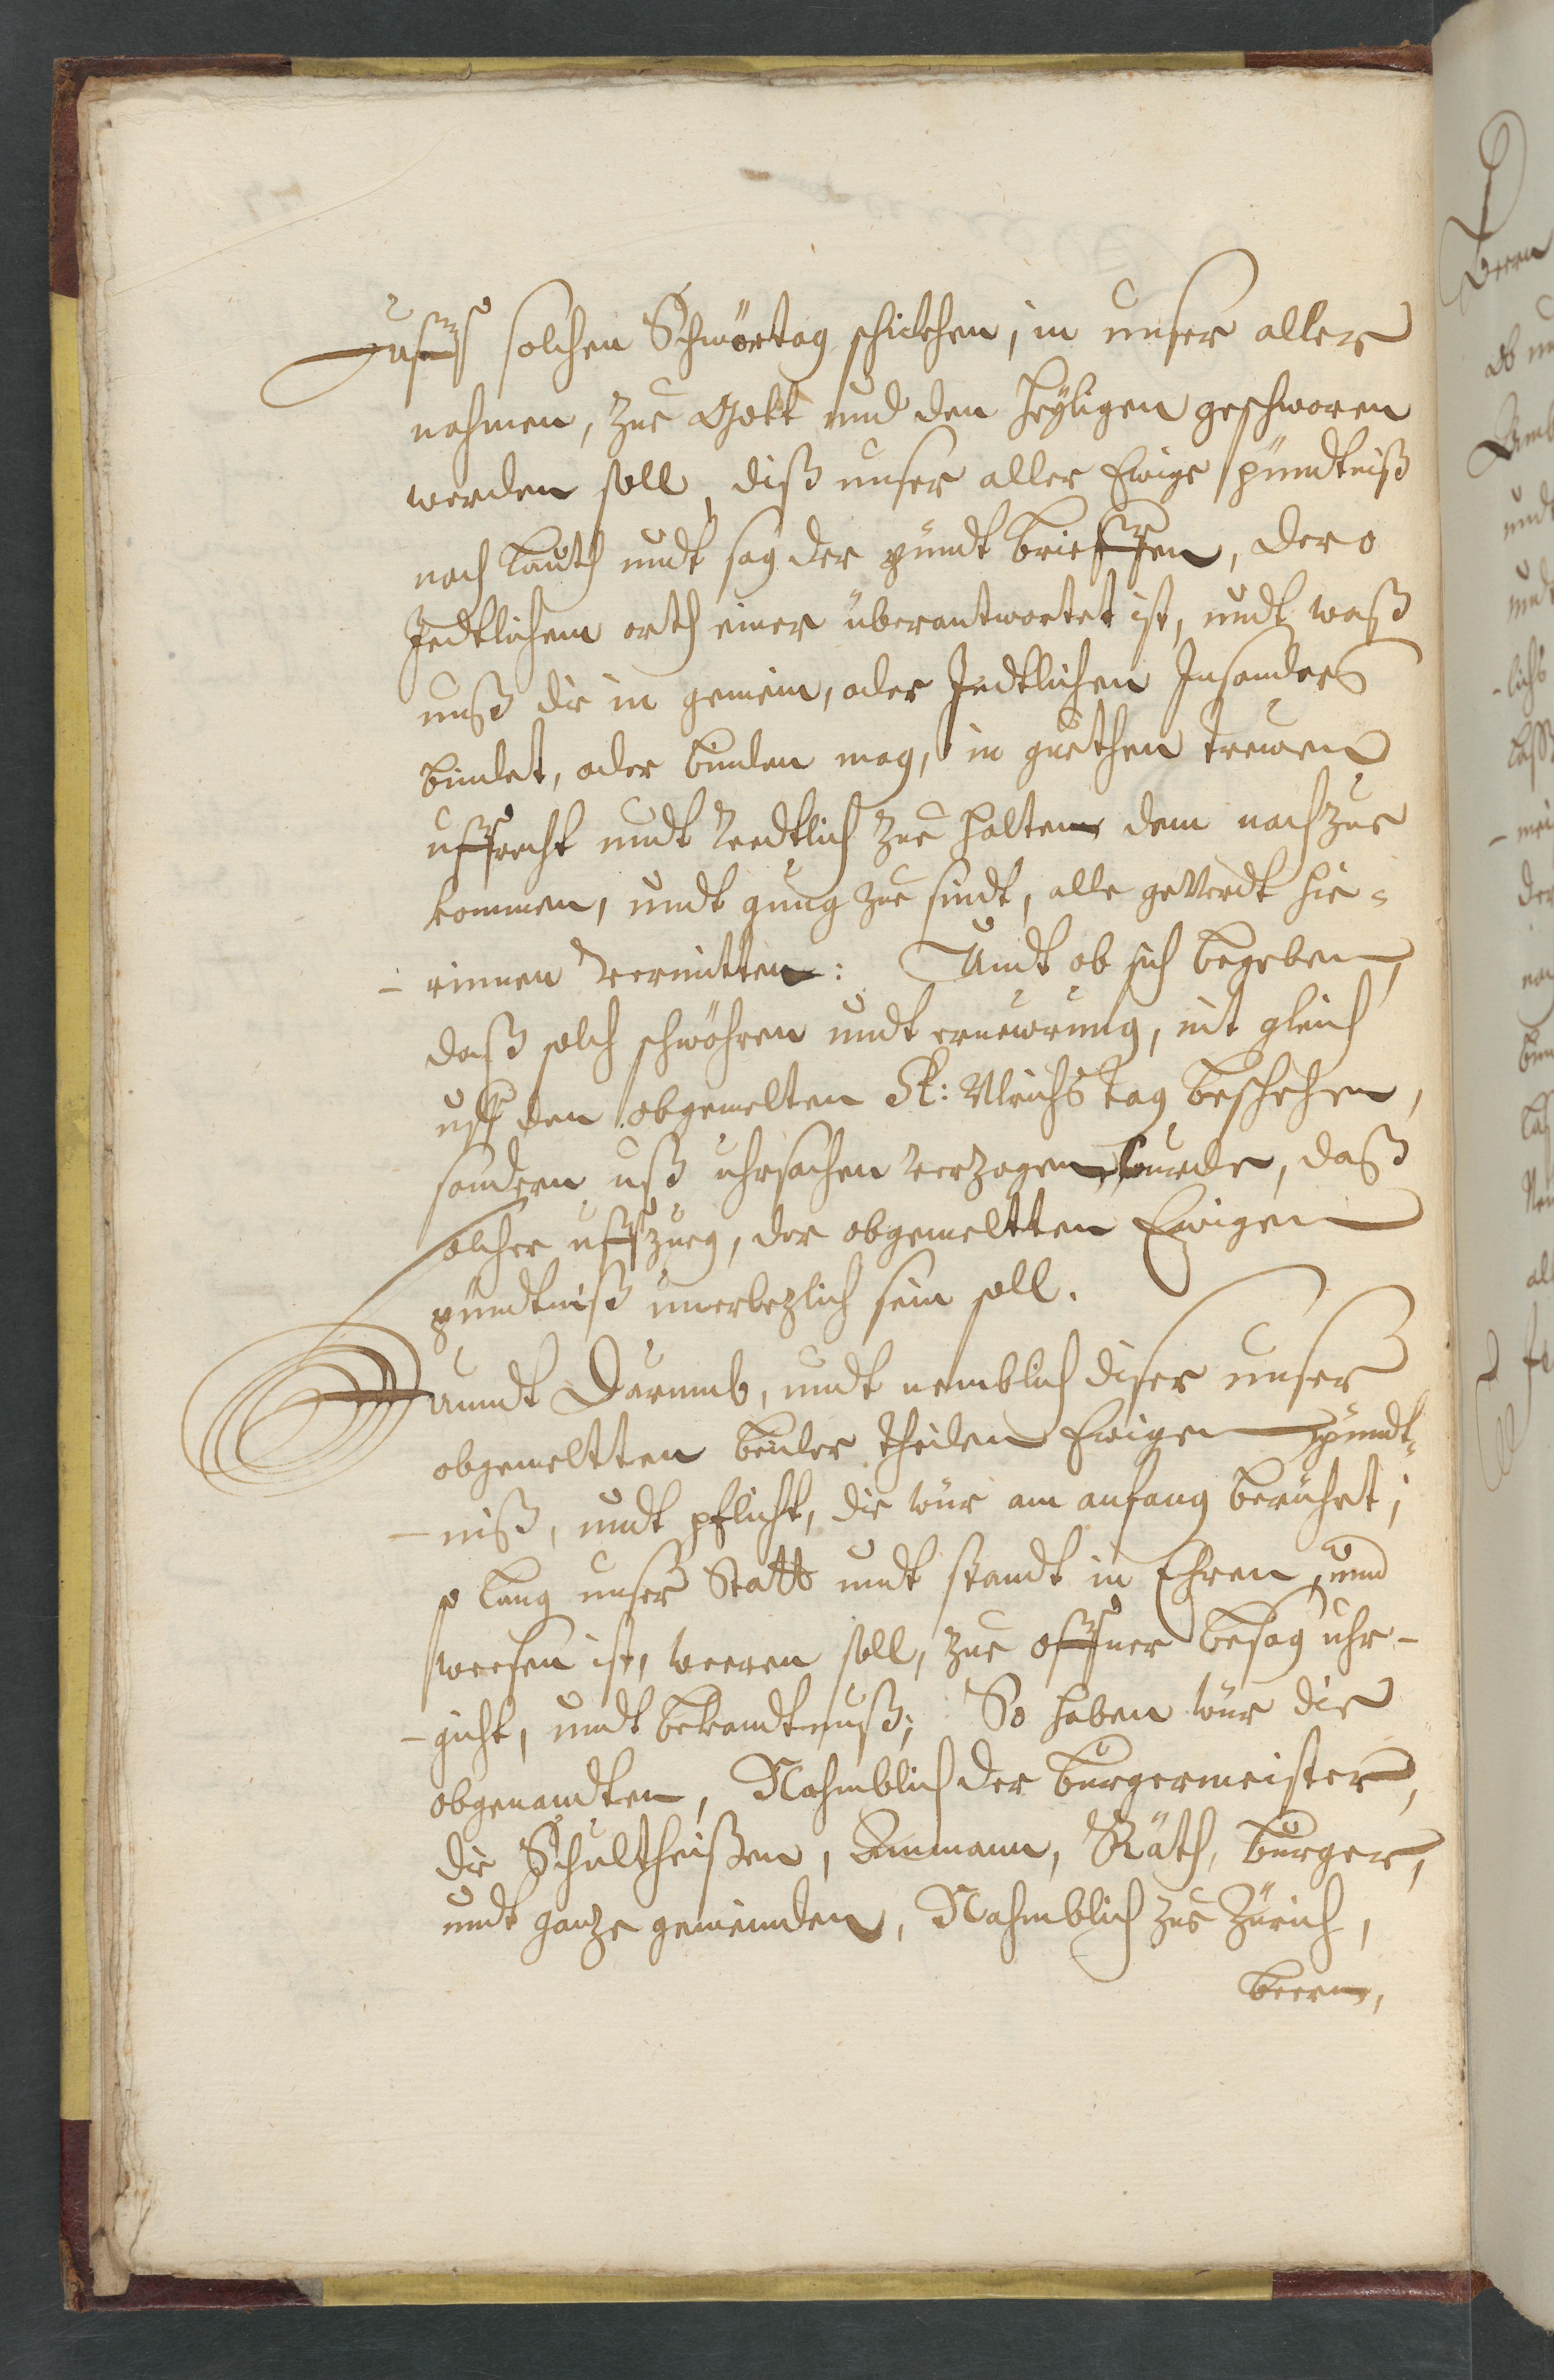 uff solchen Schwörtag schickhen, in unser aller
nahmen, zue Gott und den heyligen geschworen
werden soll, diß unser aller Ewige pündtniß
nach lauth undt sag der pündt brieffen, dero
Jedtlichem orth einer überantwortet ist, undt waß
unß die in gemein, oder Jedtlichen Insonders
bindet, oder binden mag, in guethen treuwen
uffrecht undt Redtlich zue halten dem nachzue
kommen, undt gnug zue sindt, alle geverdt hie-
-rinnen vermitten: Undt ob sich begeben,
daß solch schwöhren undt erneuwrung, nit gleich
uff den obgemelten St: Ulrichs tag beschehen,
sondern uß uhrsachen verzogen wurde, daß
solcher uffzueg, der obgemeltten Ewigen
pündtniß unverlezlich sein soll.
Unndt Darumb, undt nemblich diser unser
obgemeltten beider theilen Ewigen pündt-
-niß, undt pflicht, die wür am anfang berührt,
so lang unser Statt undt standt in Ehren, und
weesen ist, weeren soll, zue offner besag uhr-
-gicht, undt bekandtnuß; So haben wür die
obgenandten, Nahmblich der burgermeister,
die Schultheißen, Ammann, Räth, burger,
undt ganze gemeinden, Nahmblich zue Zürich,
beern,